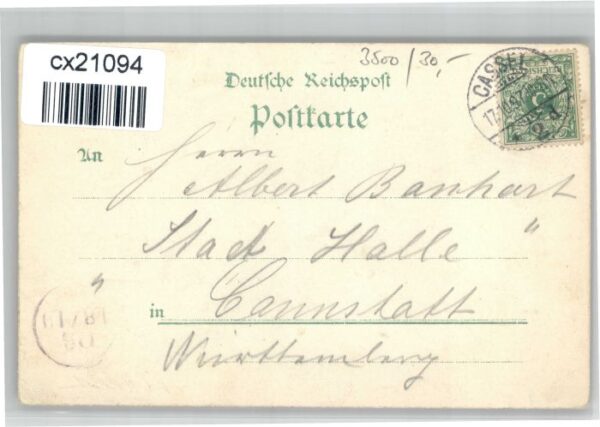 cx21094
3500/30,-
CASSEL
Deutsche Reichspost
Postkarte
An Herrn
Albert Banhart
" Stadt Halle "
in Cannstatt
Württemberg